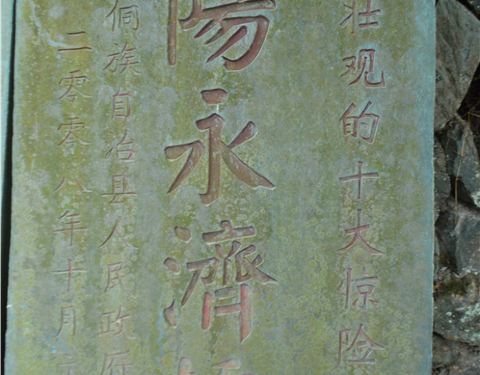 壮观的十大惊险
陽永濟
侗族自治县人民政府
二零零八年十月